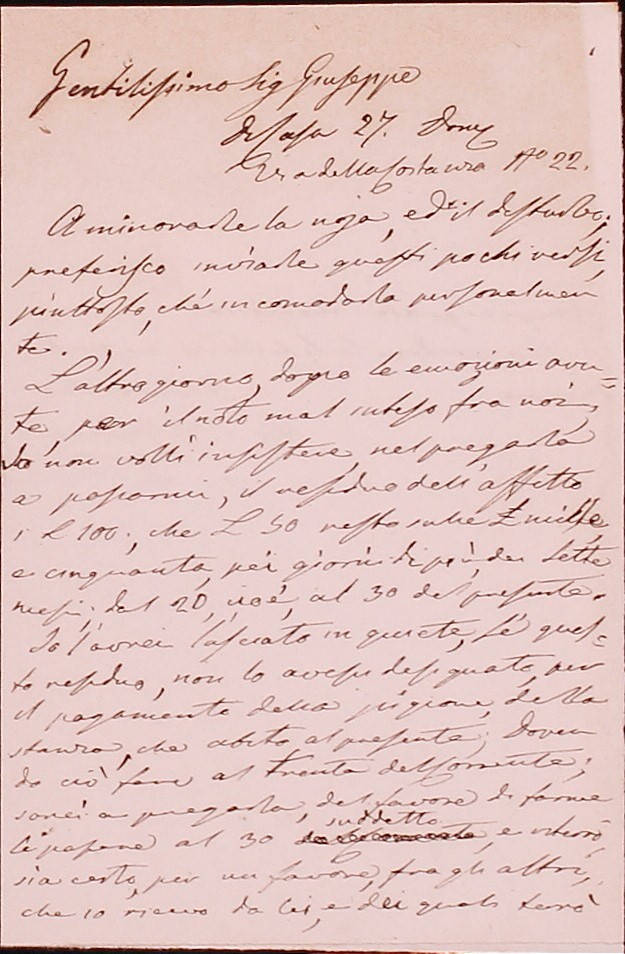 Gentilissimo Sig Giuseppe
Di Casa 27.
della N° 22.
A minorarle la noja, ed il disturbo,
preferisco inviarle questi pochi versi,
piuttosto, che incomodarla personalmen
te.
L'altro giorno, dopo le emozioni avu=
te per il noto mal inteso fra noi,
Io non volli insistere, nel pregarla
a passarmi, il residuo dell'affitto
L 100, che L 50 resto sulle £ mille
e cinquanta, pei giorni di più, dei sette
mesi; dal 20, cioè, al 30 del presente.
Io l'avrei lasciato in quiete, se ques=
to residuo, non lo avessi designato, per
il pagamento della pigione, della
stanza, che abito al presente. Doven
do ciò fare al trenta del corrente;
sarei a pregarla, del favore di farme
li passare al 30 suddetto, e
sia certo, per un favore, fra gli altri,
che io ricevo da lei, e dei quali terrò